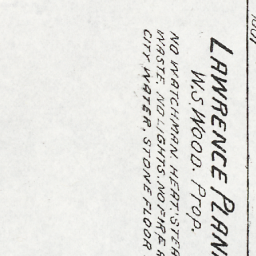 LAWRENCE PLAN
W.S. WOOD. Prop.
NO WATCHMAN. HEAT: STEA
WASTE. NO LIGHTS. NO FIRE A
CITY WATER. STONE FLOOR